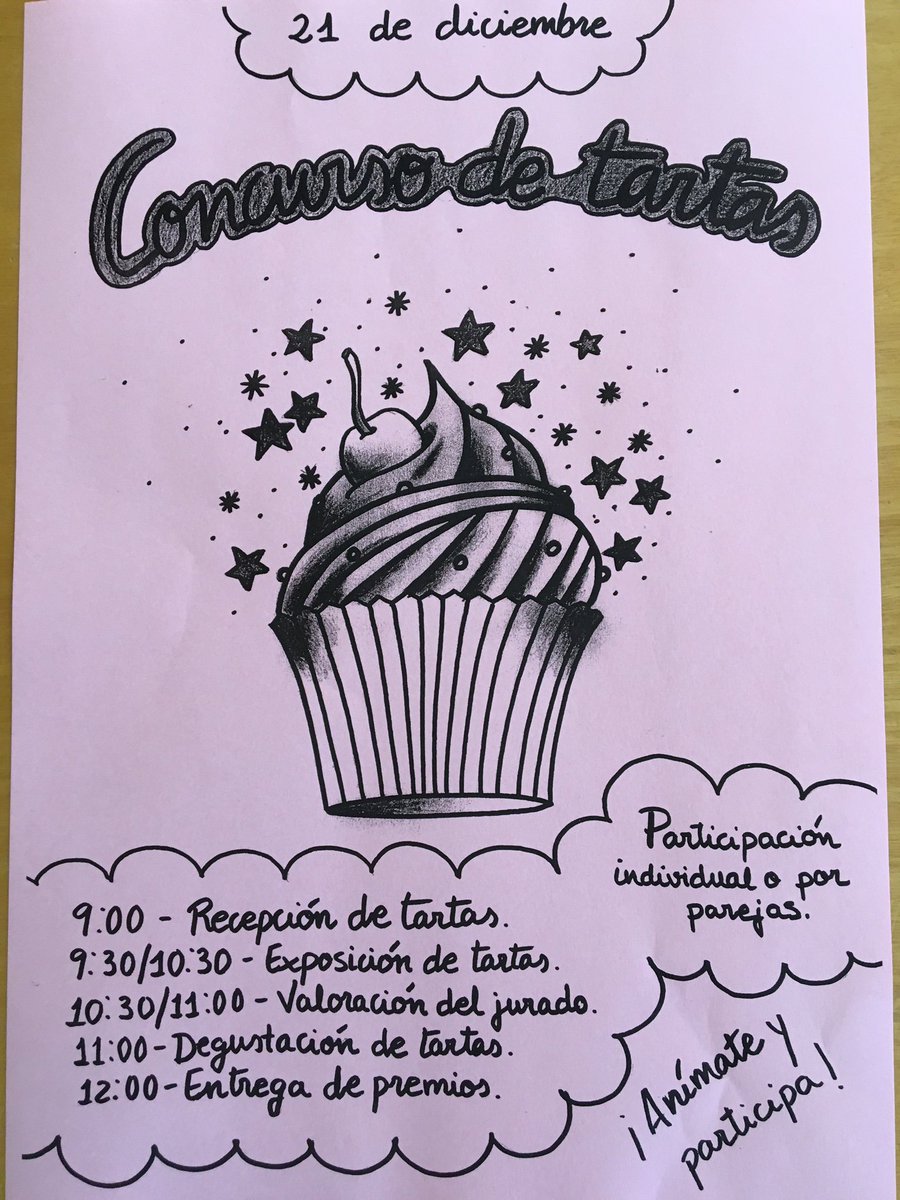 21 de diciembre
Concurso de tartas
Participación
individual o por
parejas.
9:00 - Recepción de tartas.
9:30/10:30 - Exposición de tartas.
10:30/11:00 - Valoración del jurado.
11:00 - Degustación de tartas.
12:00 - Entrega de premios.
¡Anímate y
participa!